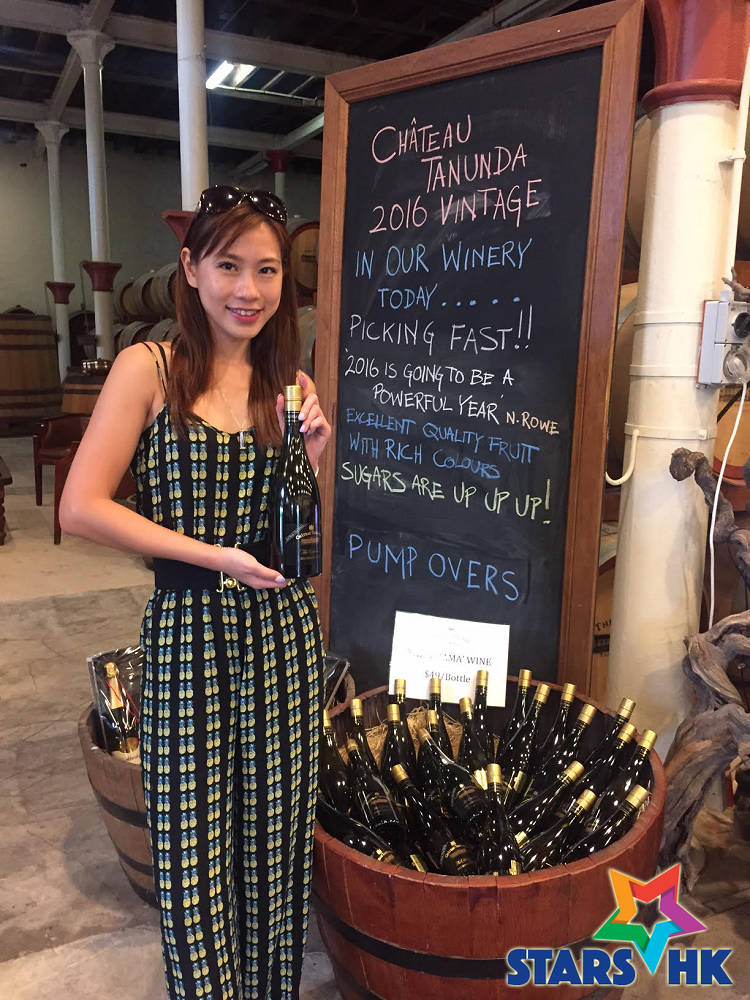 CHÂTEAU
TANUNDA
2016 VINTAGE
IN OUR WINERY
TODAY.....
PICKING FAST!!
'2016 IS GOING TO BE A
POWERFUL YEAR' N.ROWE
EXCELLENT QUALITY FRUIT
WITH RICH COLOURS
SUGARS ARE UP UP UP!
PUMP OVERS
WINE
$49/Bottle
STARS HK